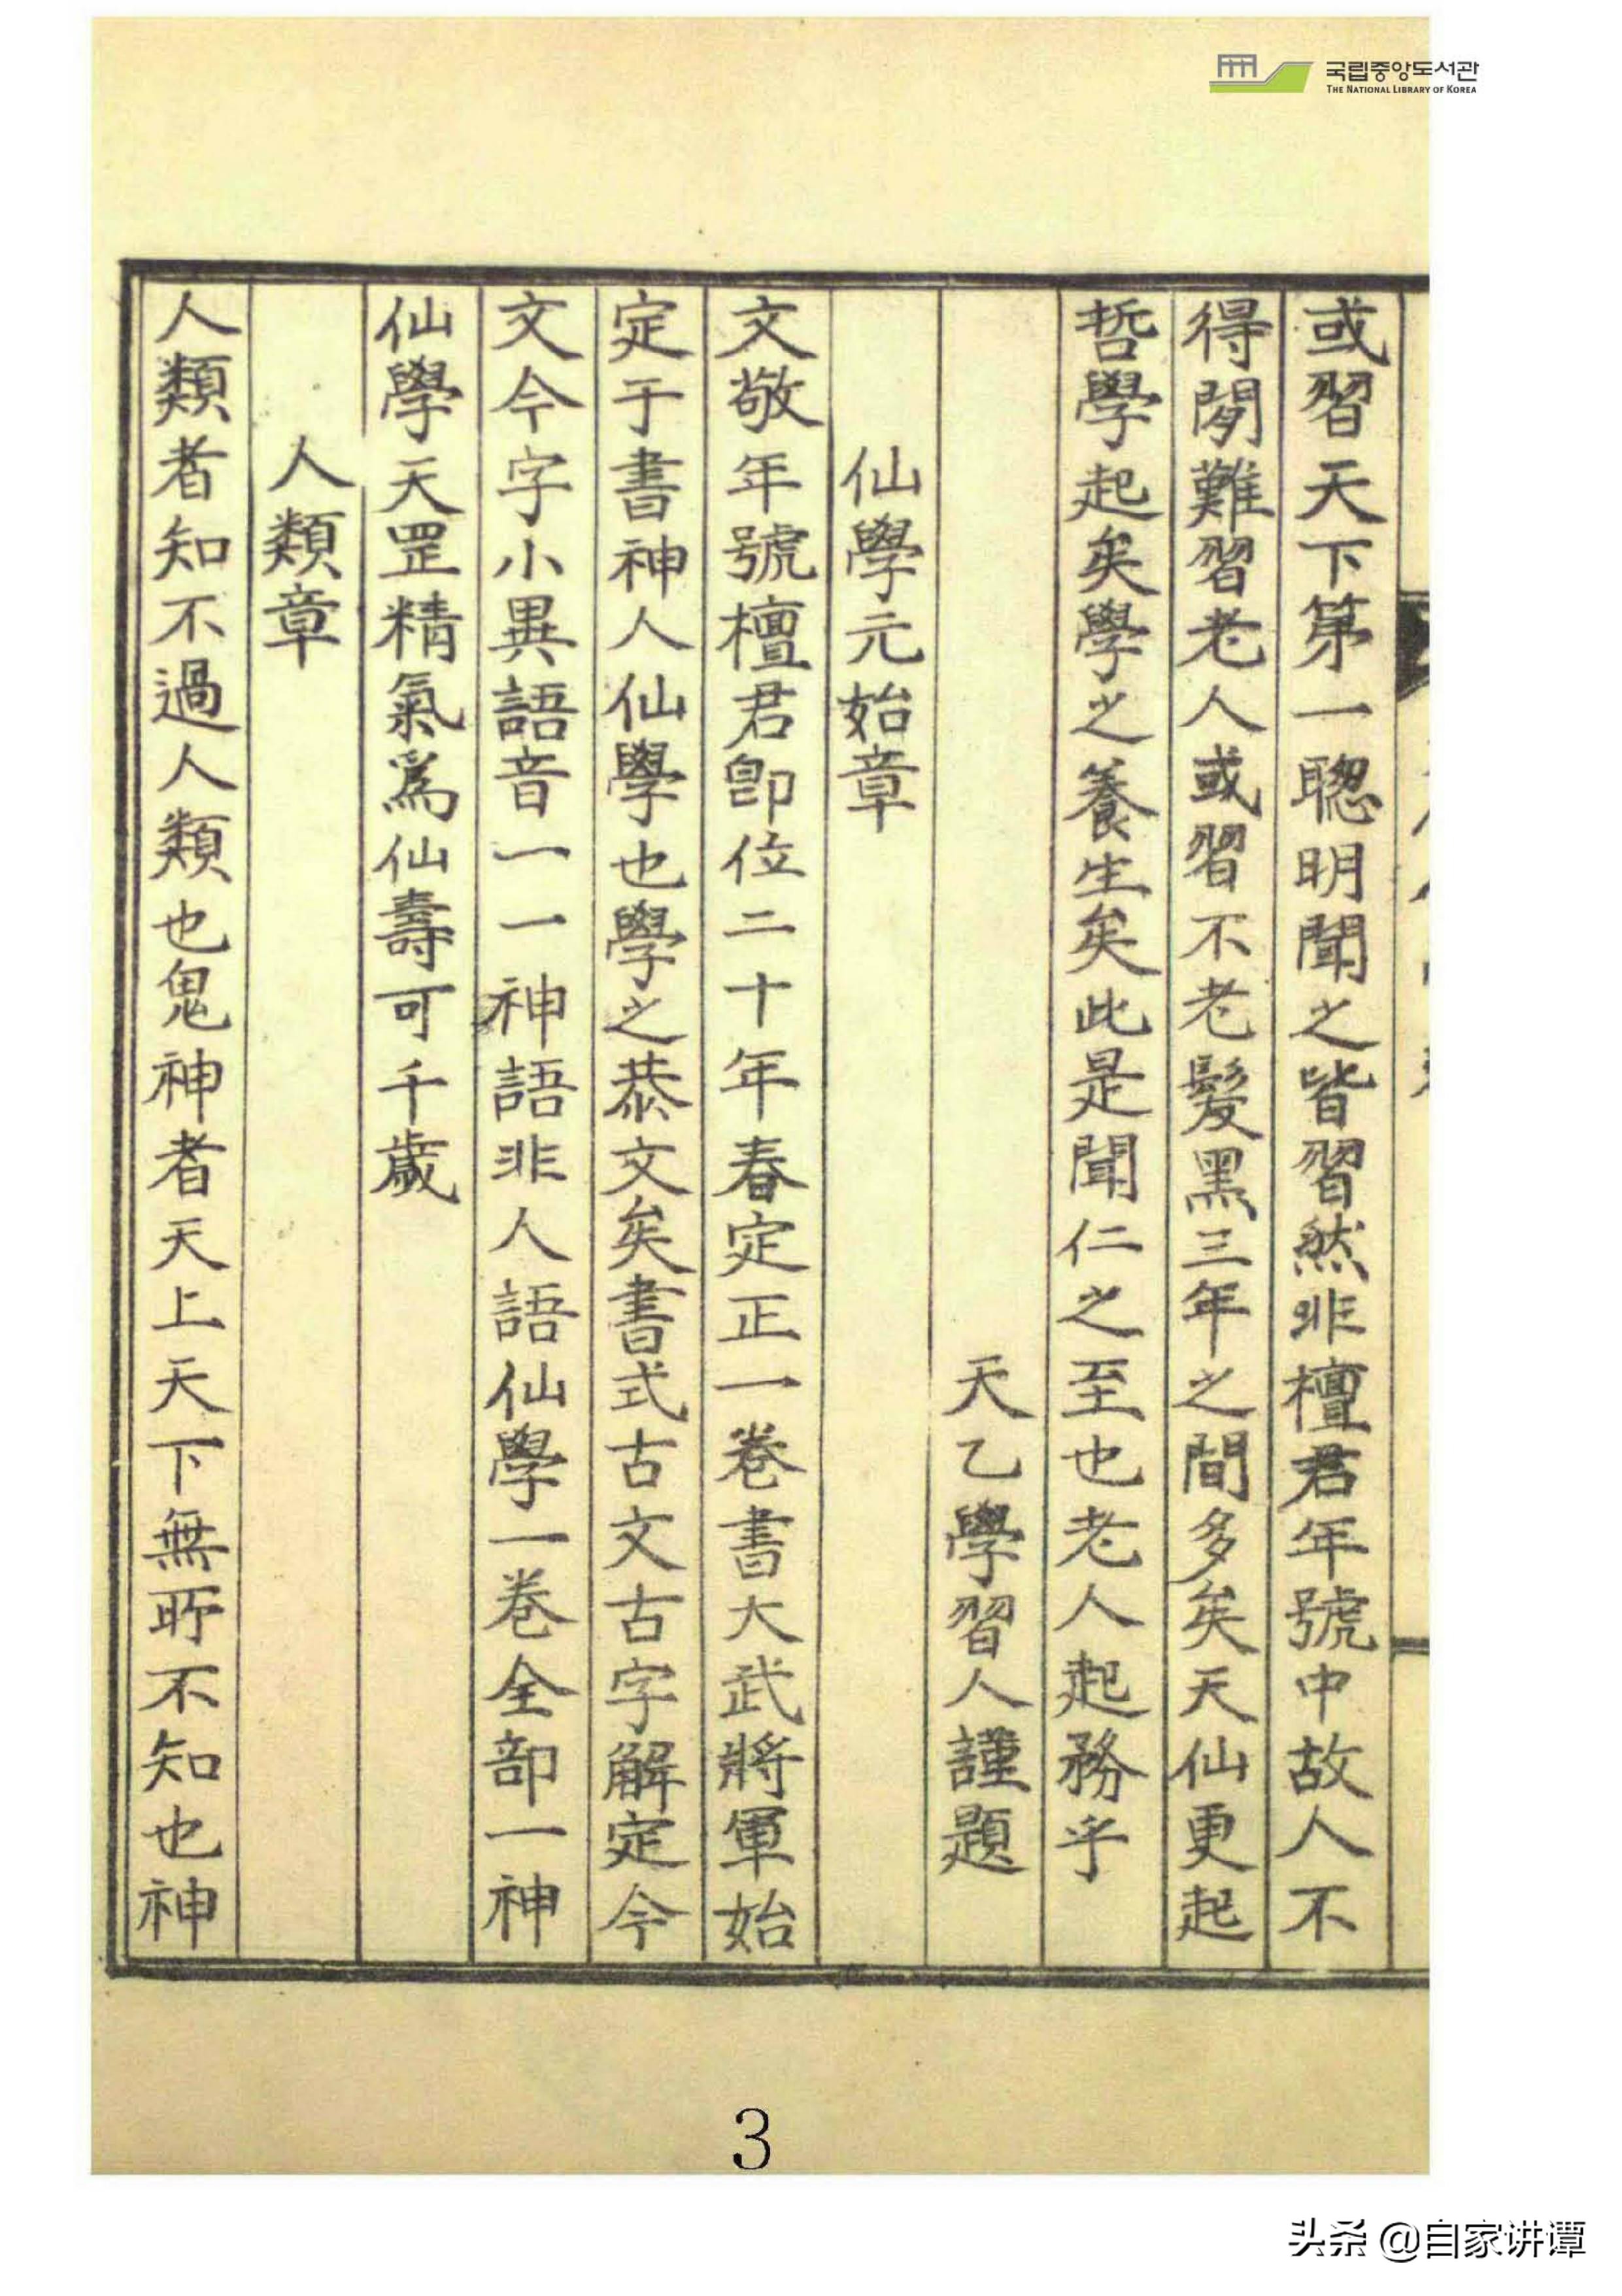 국립중앙도서관
THE NATIONAL LIBRARY OF KOREA
或習天下第一聰明聞之皆習然非檀君年號中故人不
得閱難習老人或習不老髮黑三年之間多矣天仙更起
哲學起矣學之養生矣此是聞仁之至也老人起務乎
天乙學習人謹題
仙學元始章
文敬年號檀君卽位二十年春定正一卷書大武將軍始
定于書神人仙學也學之恭文矣書式古文古字解定今
文今字小異語音一一神語非人語仙學一卷全部一神
仙學天罡精氣爲仙壽可千歲
人類章
人類者知不過人類也鬼神者天上天下無所不知也神
3
头条 @自家讲谭